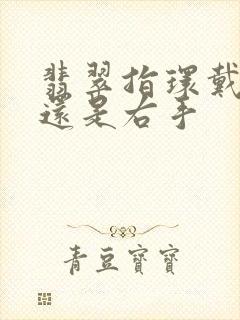 翡翠指環戴
還是右手
青豆寶寶